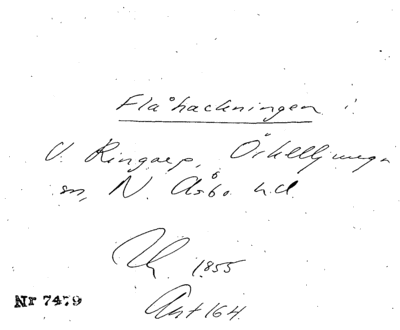 Flåhackningen i
V. Ringarp, Örkelljunga
sn, N. Åsbo hd.
1855
Nr 7479
Ant 164